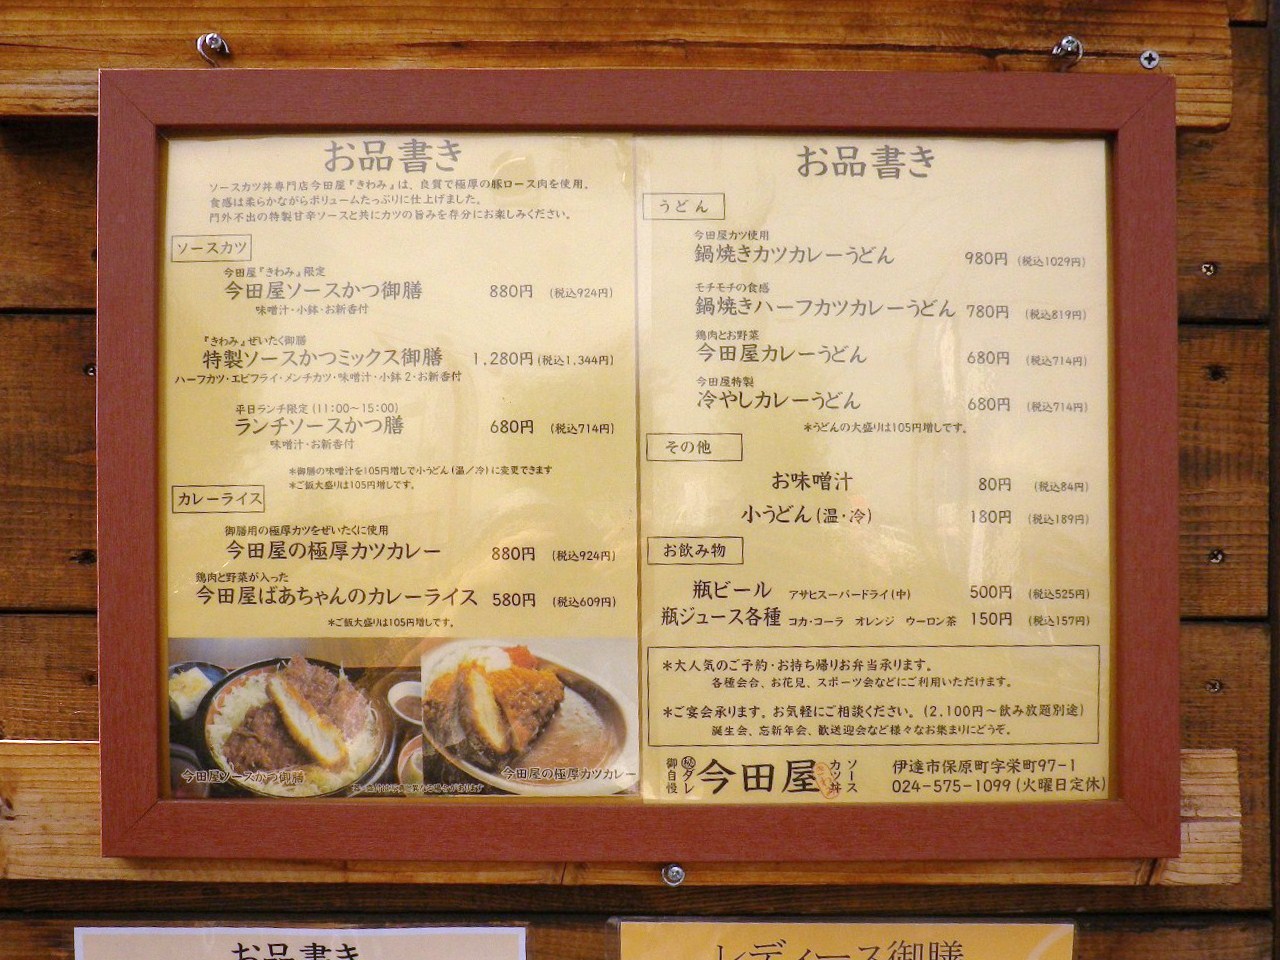 お品書き
ソースカツ丼専門店今田屋『きわみ』は、良質で極厚の豚ロース肉を使用。
食感は柔らかながらボリュームたっぷりに仕上げました。
門外不出の特製甘辛ソースと共にカツの旨みを存分にお楽しみください。
ソースカツ
今田屋『きわみ』限定
今田屋ソースかつ御膳 880円 (税込924円)
味噌汁・小鉢・お新香付
『きわみ』ぜいたく御膳
特製ソースかつミックス御膳 1,280円 (税込1,344円)
ハーフカツ・エビフライ・メンチカツ・味噌汁・小鉢2・お新香付
平日ランチ限定 (11:00〜15:00)
ランチソースかつ膳 680円 (税込714円)
味噌汁・お新香付
*御膳の味噌汁を105円増しで小うどん (温/冷) に変更できます
*ご飯大盛りは105円増しです。
カレーライス
御膳用の極厚カツをぜいたくに使用
今田屋の極厚カツカレー 880円 (税込924円)
鶏肉と野菜が入った
今田屋ばあちゃんのカレーライス 580円 (税込609円)
*ご飯大盛りは105円増しです。
今田屋ソースかつ御膳
今田屋の極厚カツカレー
お品書き
うどん
今田屋カツ使用
鍋焼きカツカレーうどん 980円 (税込1029円)
モチモチの食感
鍋焼きハーフカツカレーうどん 780円 (税込819円)
鶏肉とお野菜
今田屋カレーうどん 680円 (税込714円)
今田屋特製
冷やしカレーうどん 680円 (税込714円)
*うどんの大盛りは105円増しです。
その他
お味噌汁 80円 (税込84円)
小うどん (温・冷) 180円 (税込189円)
お飲み物
瓶ビール アサヒスーパードライ (中) 500円 (税込525円)
瓶ジュース各種 コカ・コーラ オレンジ ウーロン茶 150円 (税込157円)
*大人気のご予約・お持ち帰りお弁当承ります。
各種会合、お花見、スポーツ会などにご利用いただけます。
*ご宴会承ります。お気軽にご相談ください。(2,100円〜飲み放題別途)
誕生会、忘新年会、歓送迎会など様々なお集まりにどうぞ。
御自慢
㊙ダレ
今田屋
ソース
カツ丼
伊達市保原町字栄町97-1
024-575-1099 (火曜日定休)
お品書き
レディース御膳